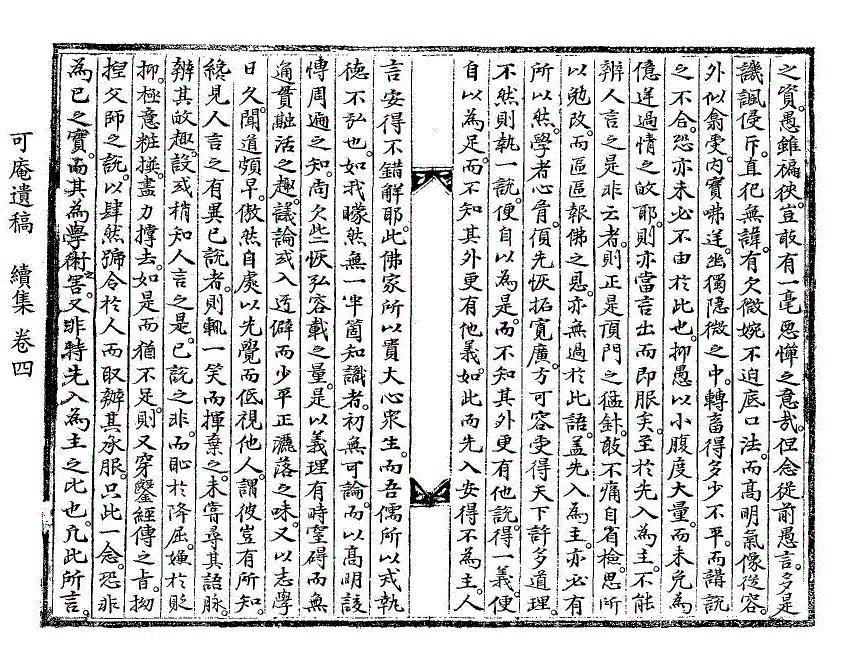 之資。愚雖褊狹。豈敢有一毫思憚之意哉。但念從前愚言。多是
譏諷侵斥。直犯無諱。有欠微婉不迫底口法。而高明氣像從容。
外似翕受。内實啡逆。幽獨隱微之中。轉畜得多少不平。而講說
之不合。恐亦未必不由於此也。抑愚以小腹度大量。而未免為
億逆過情之故耶。則亦當言出而即服矣。至於先入為主。不能
辨人言之是非云者。則正是頂門之猛針。敢不痛自省檢。思所
以勉改。而區區報佛之恩。亦無過於此語。盖先入為主。亦必有
所以然。學者心胷。湏先恢拓寬廣。方可容受得天下許多道理。
不然則執一說。便自以為是。而不知其外更有他說。得一義。便
自以為足。而不知其外更有他義。如此而先入安得不為主。人
言安得不錯解耶。此佛家所以貴大心衆生。而吾儒所以戒執
德不弘也。如我矇然無一半箇知識者。初無可論。而以高明該
愽周遍之知。尚欠些恢弘容載之量。是以義理有時窒碍而無
通貫融活之趣。議論或入迃僻而少平正灑落之味。又以志學
日久。聞道頗早。傲然自處以先覺而低視他人。謂彼豈有所知。
纔見人言之有異已說者。則輒一笑而揮棄之。未嘗尋其語脉。
辨其故趣。設或稍知人言之是。已說之非。而恥於降屈。嫥於貶
抑。極意粧撰。盡力撐去。如是而猶不足。則又穿鑿經傳之旨。拗
捏父師之說。以肆然號令於人而取辦其承服。只此一念。恐非
為已之實。而其為學術之害。又非特先入為主之比也。凡此所言。
可庵遺稿　續集　卷四